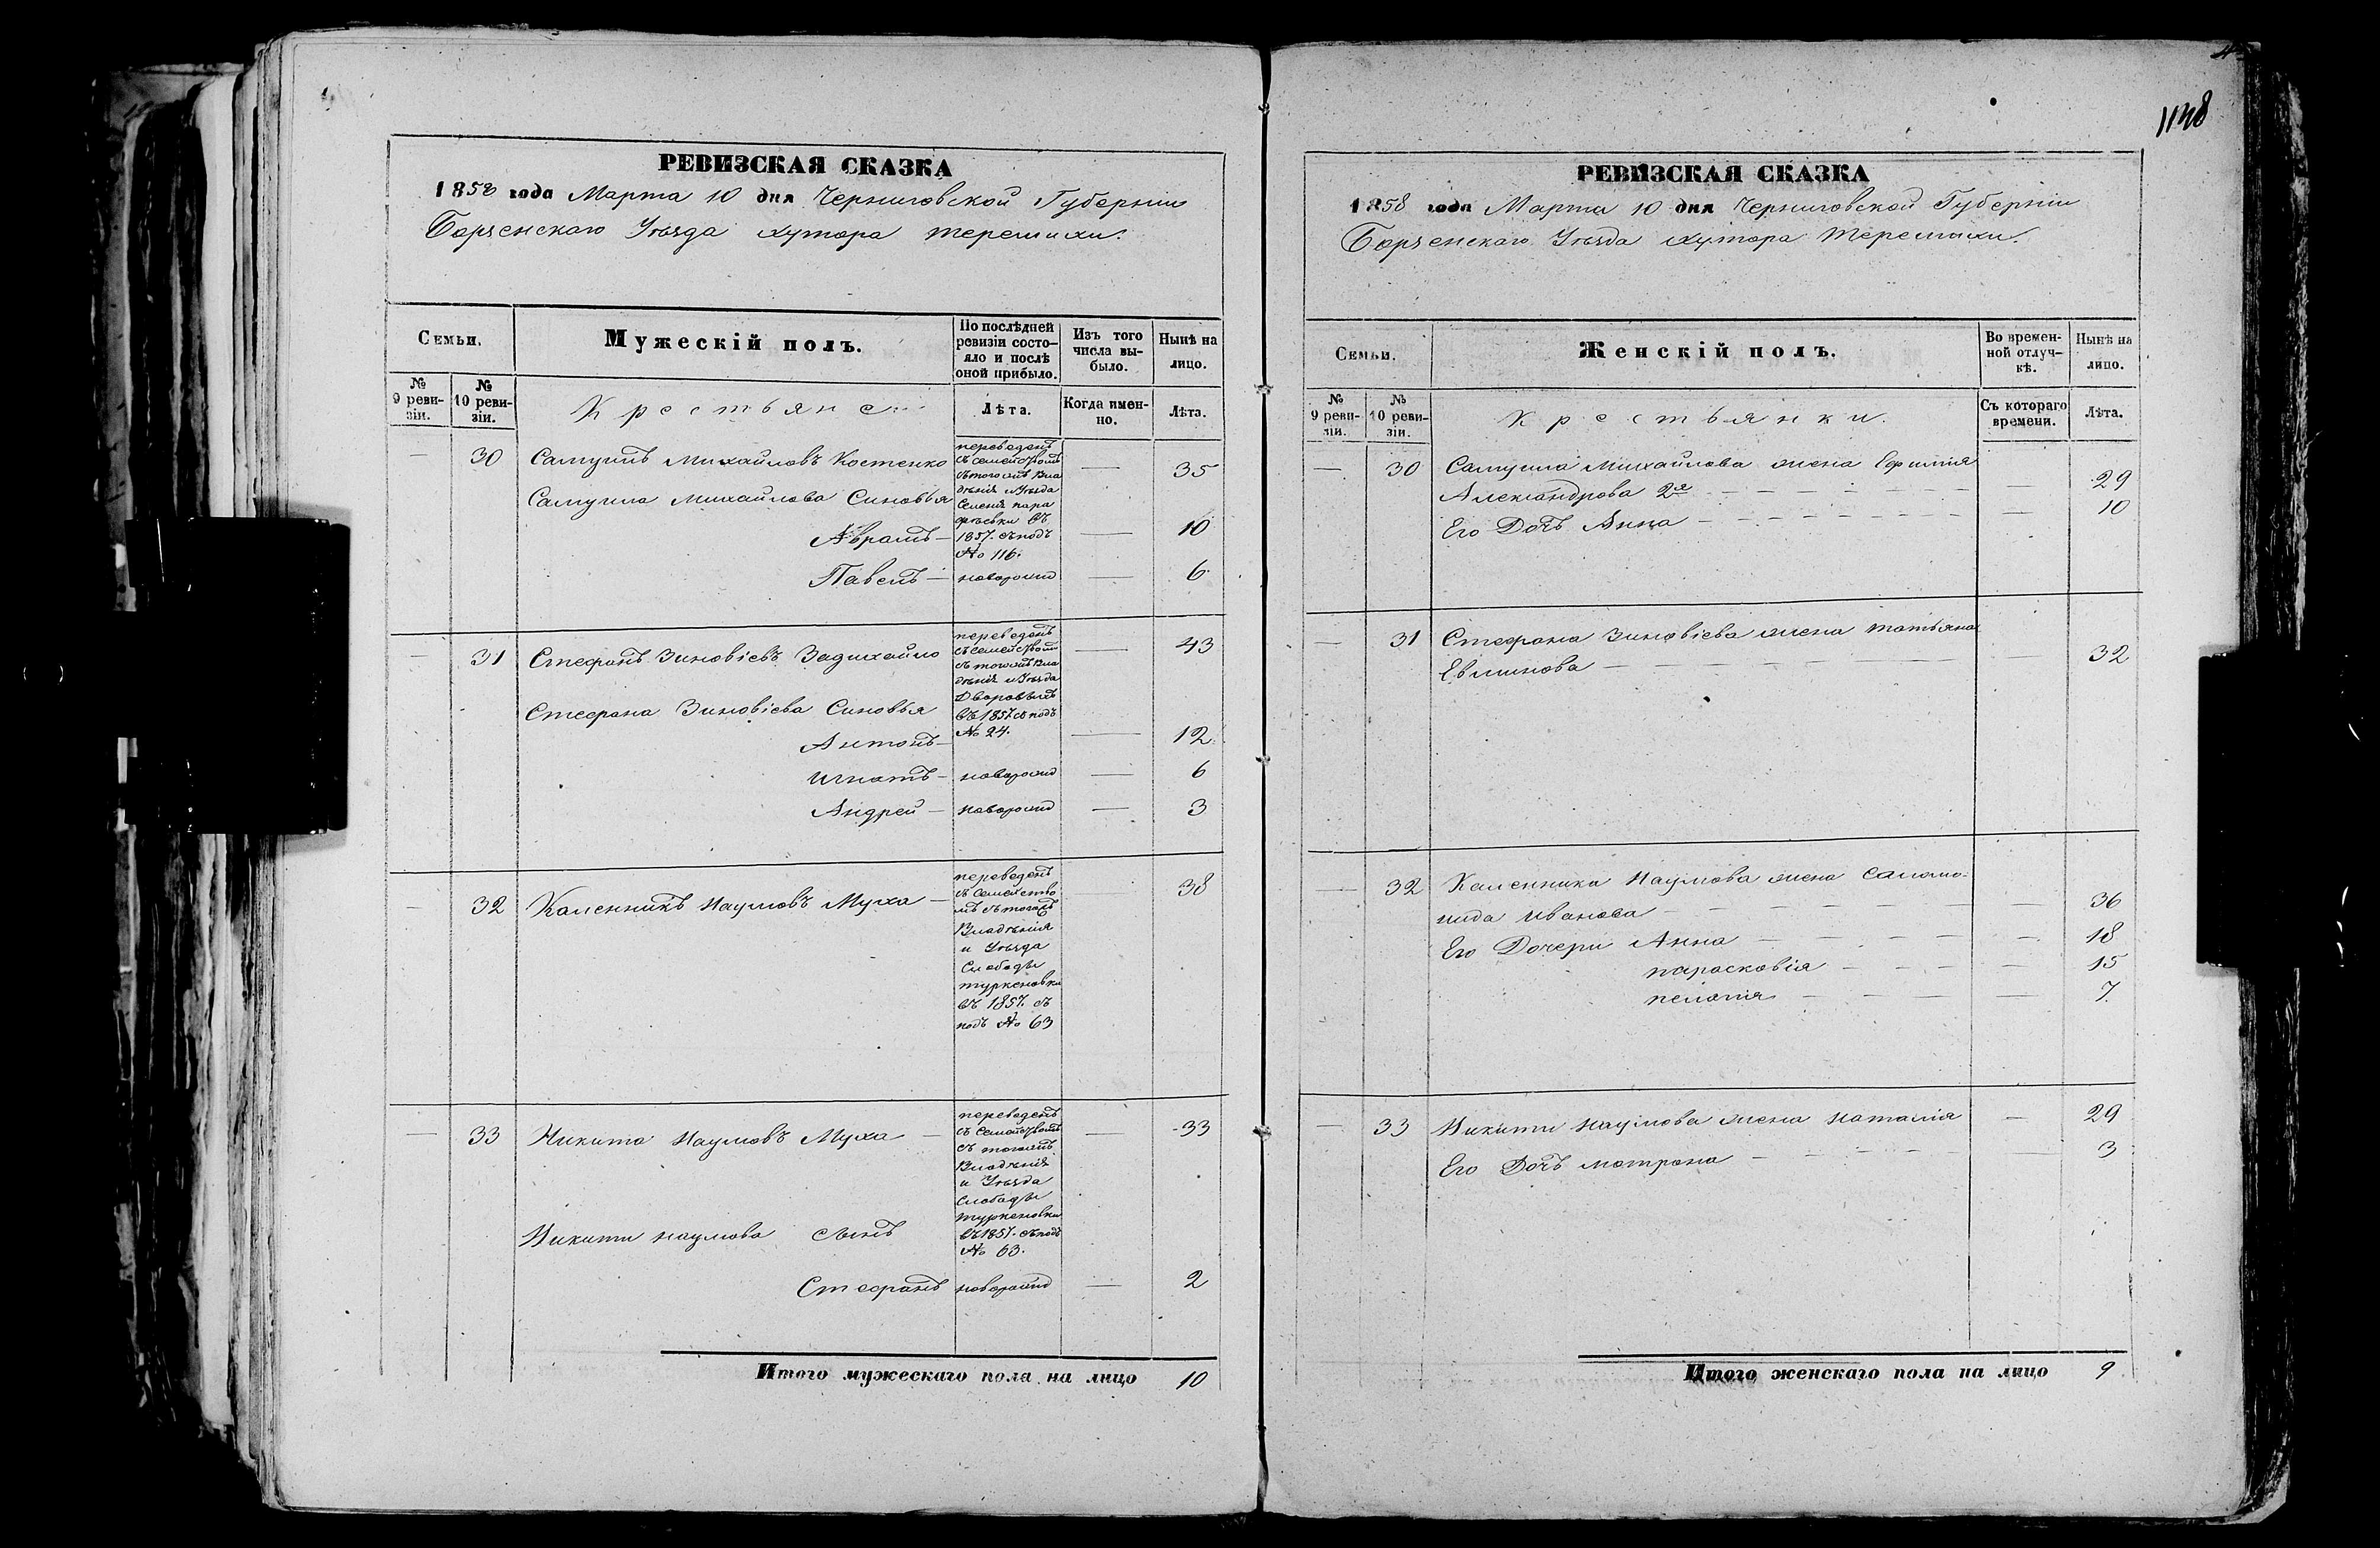 РЕВИЗСКАЯ СКАЗКА
1858 года Марта 10 дня Черниговской Губернии
Борзенскаго Уѣзда хутора Терешихи.
Семьи.
Мужескій полъ.
По послѣдней ревизіи состо-
яло и послѣ
оной прибыло.
Изъ того
числа вы-
было.
Нынѣ на
лицо.
№
9 реви-
зіи.
№
10 реви-
зіи.
Крестьяне
Лѣта.
Когда имен-
но.
Лѣта.
— 30 Самуилъ Михайловъ Костенко
переведенъ
съ семействомъ
съ тогожъ вла
дѣнія и Уѣзда
Селенія пара
фѣевки въ
1857. съ подъ
№ 116.
— 35
Самуила Михайлова Сыновья
Аврамъ — — 10
Павелъ — новорожд — 6
— 31 Стефанъ Зиновіевъ Задихайло
переведенъ
съ семействомъ
съ тогожъ вла
дѣнія и Уѣзда
Дворовымъ
въ 1857 съ подъ
№ 24.
43
Стефана Зиновіева Сыновья
Антонъ — — 12
Игнатъ — новорожд — 6
Андрей — новорожд — 3
— 32 Каленникъ Наумовъ Муха —
переведенъ
съ семейство
мъ съ тогожъ
Владѣнія
и Уѣзда
Слободы
туркеновки
въ 1857. съ
подъ № 63
38
— 33 Никита Наумовъ Муха —
переведенъ
съ семействомъ
съ тогожъ
Владѣнія
и Уѣзда
Слободы
туркеновки
въ 1857. съ подъ
№ 63.
— 33
Никиты Наумова сынъ
Стефанъ новорожд — 2
Итого мужескаго пола на лицо 10
1148
РЕВИЗСКАЯ СКАЗКА
1858 года Марта 10 дня Черниговской Губерніи
Борзенскаго Уѣзда хутора Терешихи.
Семьи.
Женскій полъ.
Во времен-
ной отлуч-
кѣ.
Нынѣ на
лицо.
№
9 реви-
зіи.
№
10 реви-
зіи.
Крестьянки.
Съ котораго
времени.
Лѣта.
— 30 Самуила Михайлова жена Ефимія
Александрова 2я — 29
Его Дочь Анна — 10
— 31 Стефана Зиновіева жена татьяна
Евминова — 32
— 32 Каленника Наумова жена Саломо-
нида Иванова — 36
Его Дочери Анна — 18
парасковія — 15
пелагія — 7.
— 33 Никиты Наумова жена Наталія — 29
Его Дочь матрона — 3
Итого женскаго пола на лицо 9